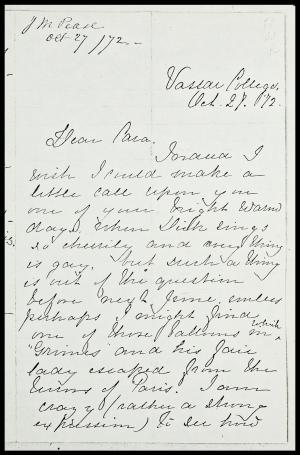 J M Pease
Oct 27/72-
Vassar College,
Oct. 27. '72.
Dear Cara.
I
wish I could make a
little call upon you
one of your bright warm
days. When Dick sings
so cheerily and any thing
is gay. but such a thing
is out of the question
before next June, unless
perhaps I might find
one of those balloons in which
"Grimes" and his fair
lady escaped from the
of Paris. I am
crazy (rather a strong
expression) to see how